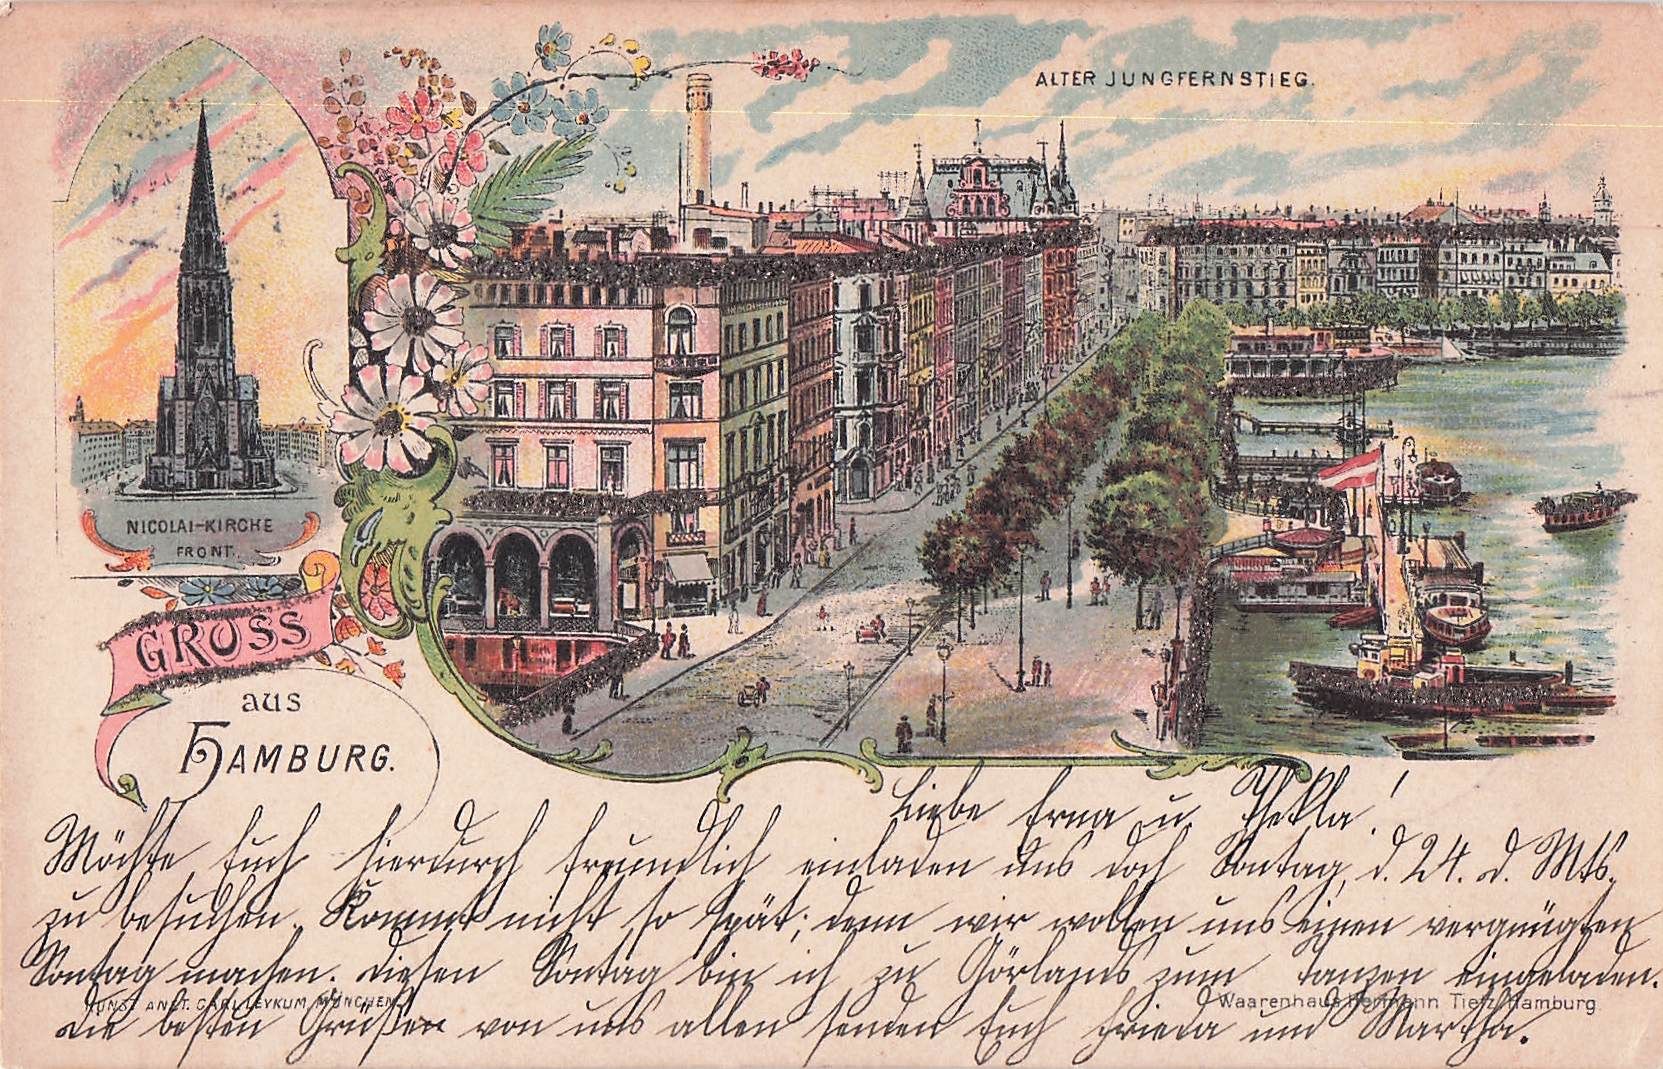 ALTER JUNGFERNSTIEG.
NICOLAI-KIRCHE
FRONT.
GRUSS
aus
HAMBURG.
Liebe Erna u. Thekla!
Möchte Euch hierdurch freundlich einladen uns doch Sontag, d. 24. d. Mts.
zu besuchen. Kommt nicht so spät; denn wir wollen uns einen vergnügten
Sontag machen. Diesen Sontag bin ich zu Görlands zum tanzen eingeladen.
KUNST ANST. CARL LEYKUM, MÜNCHEN.
Waarenhaus Hermann Tietz, Hamburg.
Die besten Grüßen von uns allen senden Euch Frieda und Martha.